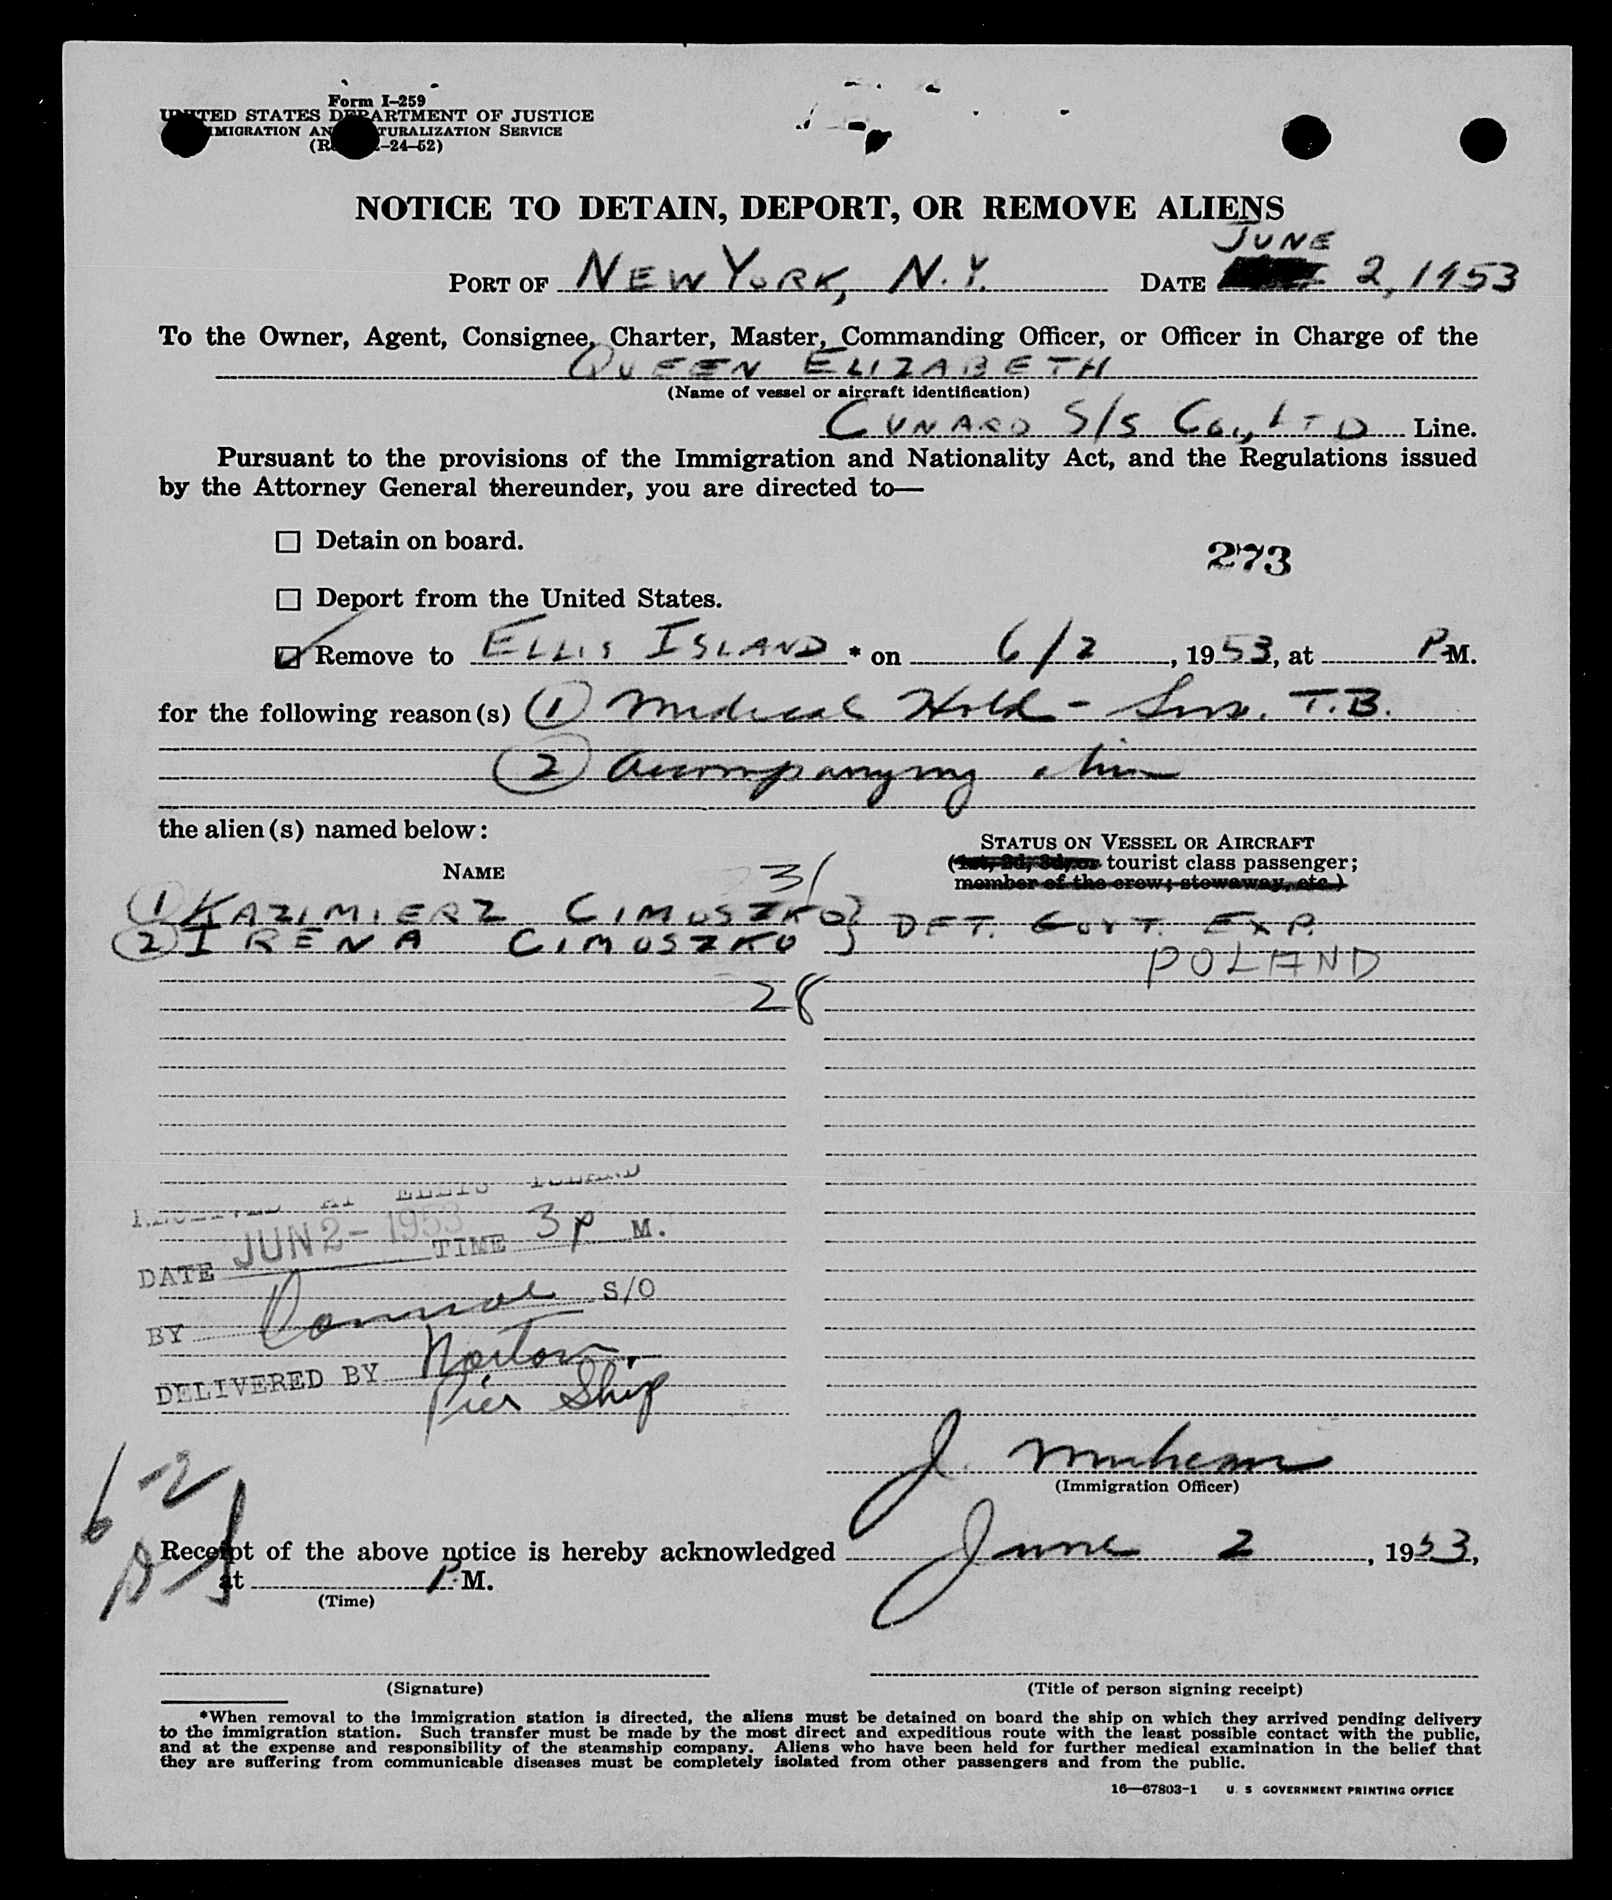 Form I-259
UNITED STATES DEPARTMENT OF JUSTICE
IMMIGRATION AND NATURALIZATION SERVICE
-24-52)
NOTICE TO DETAIN, DEPORT, OR REMOVE ALIENS
JUNE
PORT OF NEW YORK, N.Y. DATE 2, 1953
To the Owner, Agent, Consignee, Charter, Master, Commanding Officer, or Officer in Charge of the
QUEEN ELIZABETH
(Name of vessel or aircraft identification)
CUNARD S/S Co., LTD Line.
Pursuant to the provisions of the Immigration and Nationality Act, and the Regulations issued
by the Attorney General thereunder, you are directed to—
☐ Detain on board.
273
☐ Deport from the United States.
☑ Remove to ELLIS ISLAND * on 6/2, 1953, at P M.
for the following reason(s) (1) Medical Hold - T.B.
(2) Accompanying alien
the alien(s) named below:
STATUS ON VESSEL OR AIRCRAFT
NAME
(1st, 2d, 3d, or tourist class passenger;
member of the crew; stowaway, etc.)
31
(1) KAZIMIERZ CIMOSZKO } DET. GOVT. EXP.
(2) IRENA CIMOSZKO
POLAND
28
RECEIVED AT ELLIS ISLAND
DATE JUN 2- 1953 TIME 3 P M.
BY S/O
DELIVERED BY Norton.
Pier Ship
J.
(Immigration Officer)
6-2
Receipt of the above notice is hereby acknowledged June 2, 1953,
at P. M.
(Time)
(Signature)
(Title of person signing receipt)
*When removal to the immigration station is directed, the aliens must be detained on board the ship on which they arrived pending delivery
to the immigration station. Such transfer must be made by the most direct and expeditious route with the least possible contact with the public,
and at the expense and responsibility of the steamship company. Aliens who have been held for further medical examination in the belief that
they are suffering from communicable diseases must be completely isolated from other passengers and from the public.
16—67803-1 U. S GOVERNMENT PRINTING OFFICE